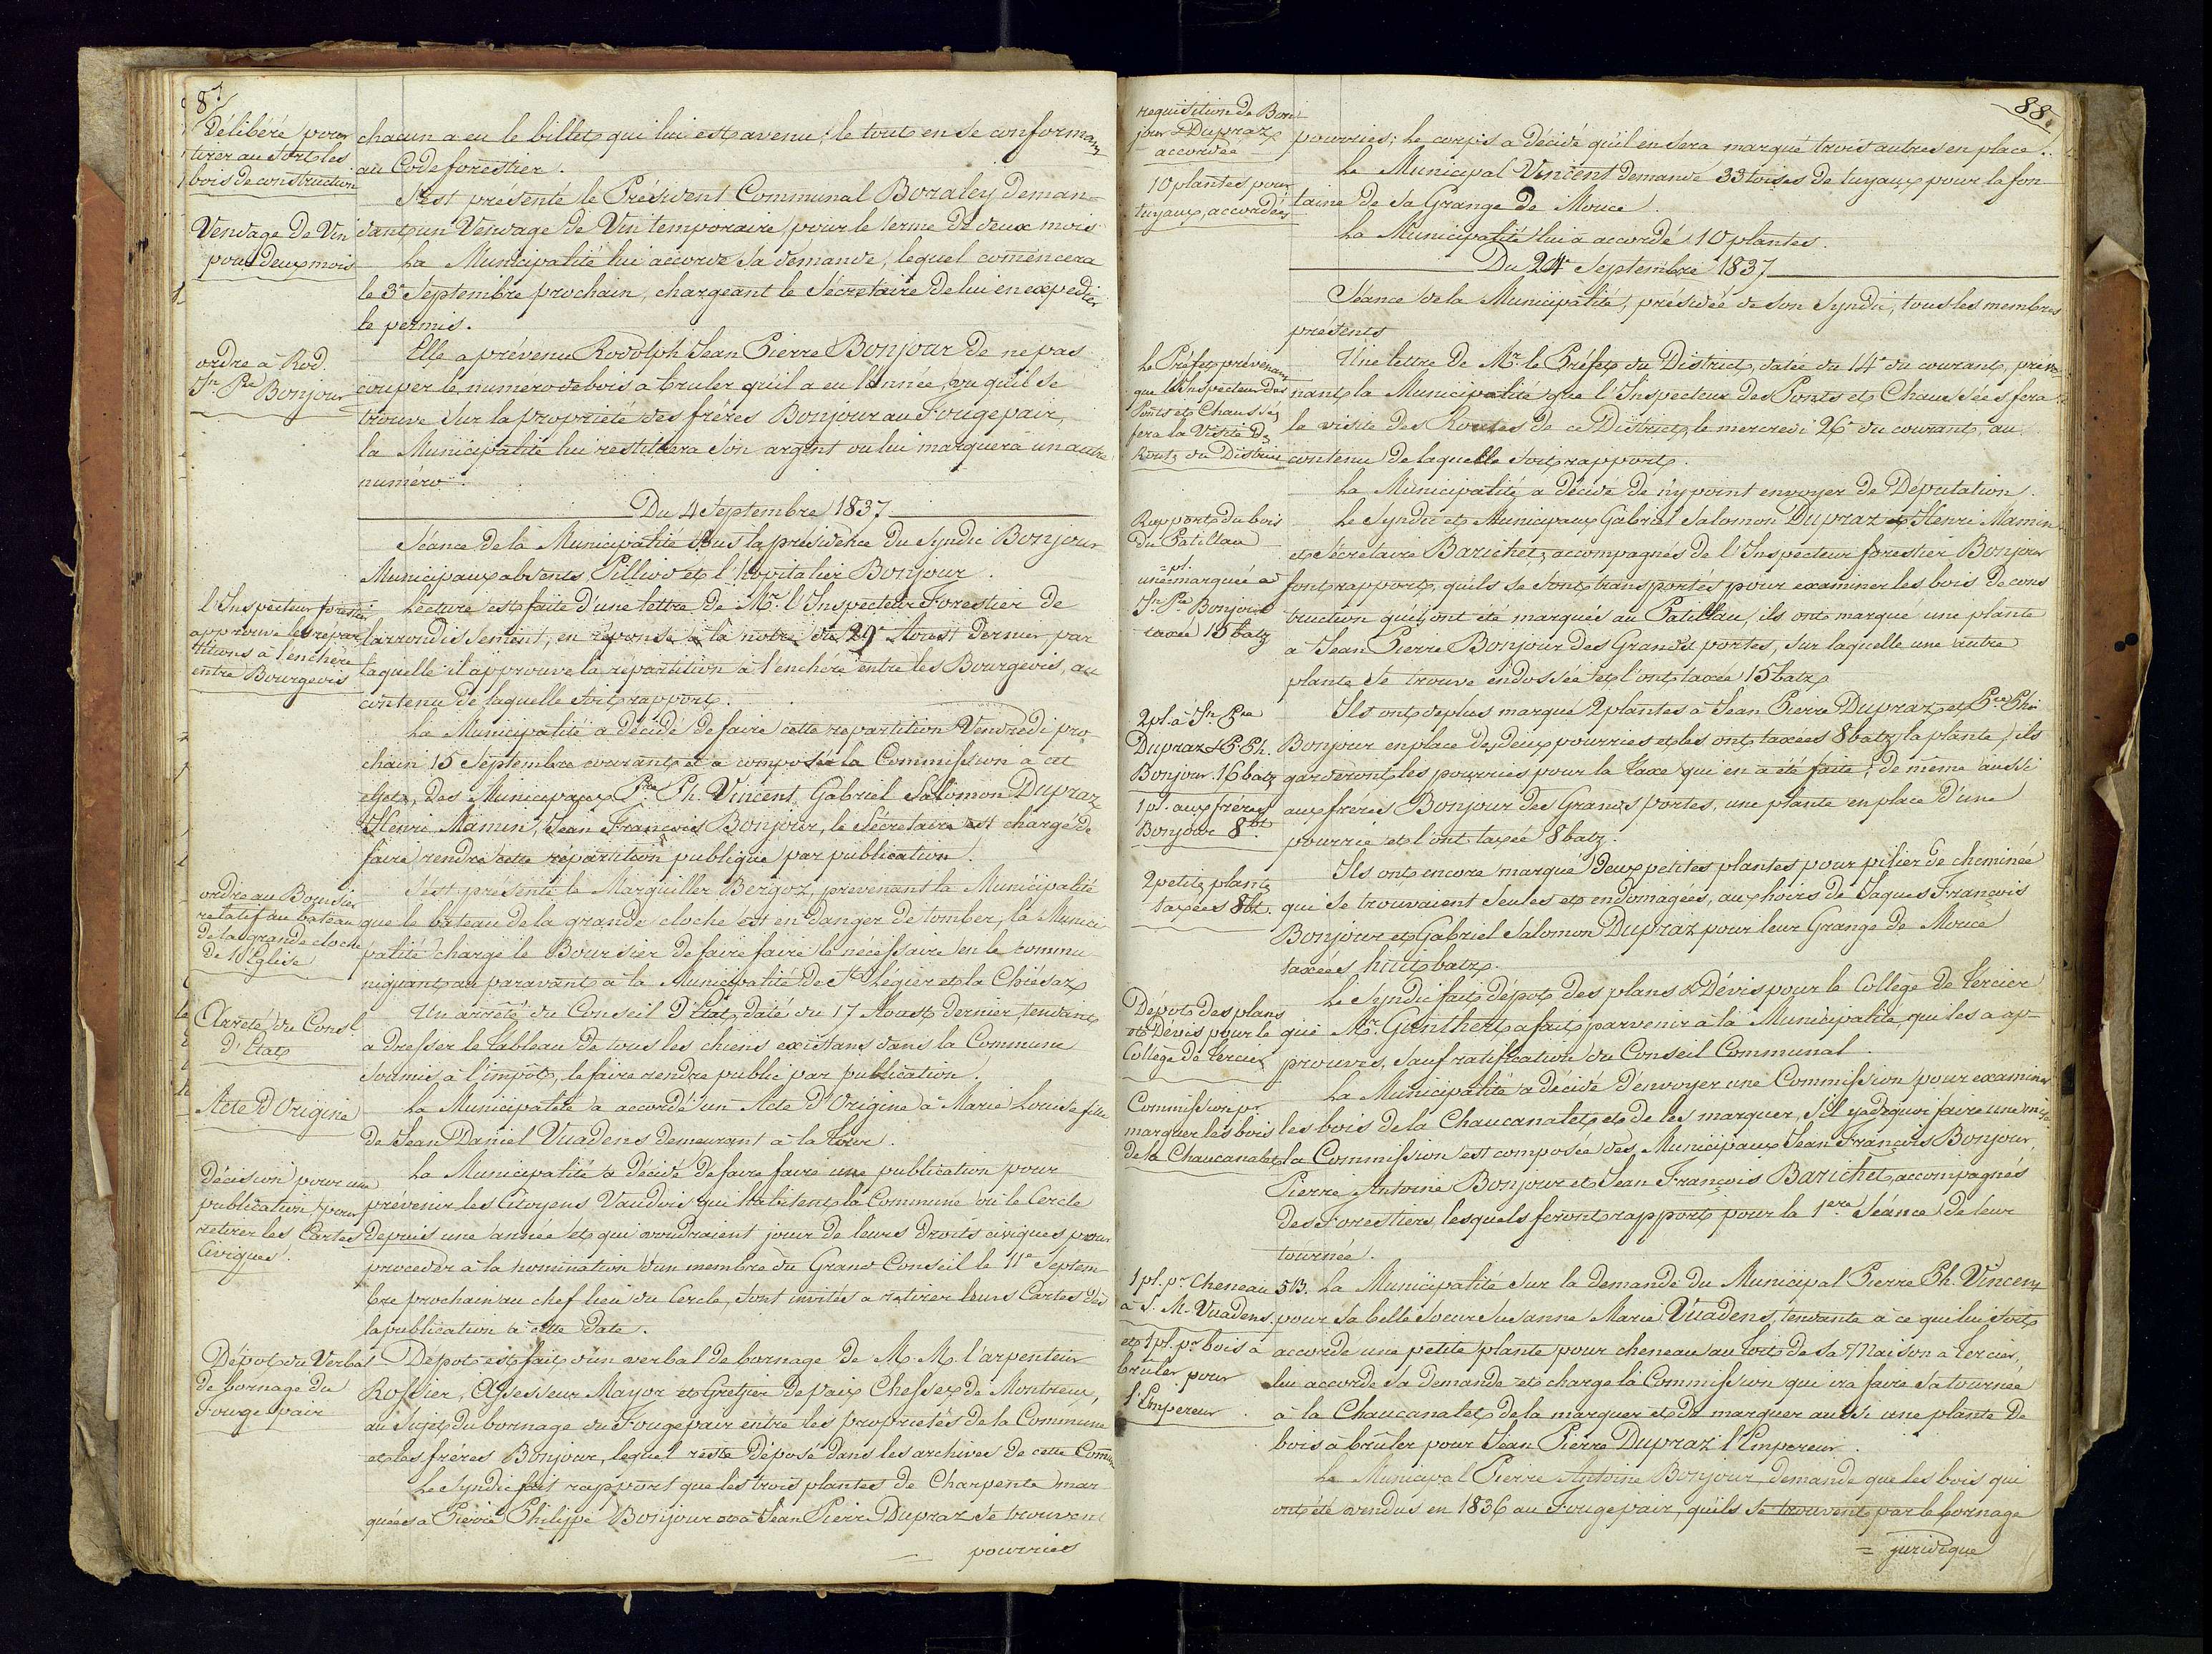 87
Délibéré pour
tirer au sort les
bois de construction
chacun a eu le billet qui lui est avenu; le tout en se conformant
au Code forestier.
S'est présenté le Président Communal Boraley deman-
Vendage de Vin
pour deux mois
dant un Vendage de Vin temporaire pour le terme de deux mois
La Municipalité lui accorde sa demande, lequel comencera
le 3e Septembre prochain, chargeant le Sécretaire de lui en expedier
le permis.
ordre à Rod.
Jn Pre Bonjour
Elle a prévenu Rodolph Jean Pierre Bonjour de ne pas
couper le numero de bois a bruler qu'il a eu l'année, vu qu'il se
trouve sur la propriété des frères Bonjour au Fougepair,
la Municipalité lui restituera son argent ou lui marquera un autre
numéro.
Du 4 Septembre 1837
Séance de la Municipalité sous la présidence du Syndic Bonjour
Municipaux absents Pilliod et l'hopitalier Bonjour.
l'Inspecteur forestier
approuve les répar-
titions à l'enchère
entre Bourgeois
Lecture est faite d'une lettre de Mr. l'Inspecteur Forestier de
l'arrondissement, en réponse à la notre du 29e Aoust dernier, par
laquelle il approuve la répartition à l'enchère entre les Bourgeois, au
contenu de laquelle soit rapport.
La Municipalité a décidé de faire cette repartition Vendredi pro-
chain 15 Septembre courant et a composée la Commission à cet
effet, des Municipaux Pre Ph. Vincent, Gabriel Salomon Dupraz
Henri Mamin, Jean François Bonjour, le Sécretaire est chargé de
faire rendre cette répartition publique par publication.
ordre au Boursier
relatif au bateau
de la grande cloche
de l'Eglise
S'est présenté le Marguiller Bergoz, prevenant la Municipalité
que le bateau de la grande cloche est en danger de tomber, la Munici-
palité charge le Boursier de faire faire le nécessaire en le commu-
niquant au paravant à la Municipalité de St. Légier et la Chiésaz
Arrêté du Consl
d'Etat
Un arrêté du Conseil d'Etat, daté du 17 Aoust dernier, tendant
a dresser le tableau de tous les chiens existans dans la Commune
soumis à l'impôt, le faire rendre public par publication.
Acte d'Origine
La Municipalité a accordé un Acte d'Origine à Marie Louise fille
de Jean Daniel Vuadens demeurant à la Tour.
Décision pour une
publication pour
retirer les Cartes
Civiques.
La Municipalité a décidé de faire faire une publication pour
prévenir les Citoyens Vaudois qui habitent la Commune ou le Cercle
depuis une année et qui voudraient jouir de leurs droits civiques pour
proceder à la nomination d'un membre du Grand Conseil le 11e Septem-
bre prochain au chef lieu du Cercle, sont invités a retirer leurs Cartes dès
la publication à cette date.
Dépot du Verbal
de bornage du
Fouge pair
Depot est fait d'un verbal de bornage de M. M. l'arpenteur
Rossier, Assesseur Mayor et Greffier de paix Chessex de Montreux,
au sujet du bornage du Fougepair entre les propriétés de la Commune
et les frères Bonjour, lequel reste déposé dans les archives de cette Comune
Le Syndic fait rapport que les trois plantes de Charpente mar-
quées à Pierre Philippe Bonjour et à Jean Pierre Dupraz se trouvent
pourries
88.
requisition de Bon-
jour & Dupraz
accordée
pourries; le corps a décidé qu'il en sera marqué trois autres en place.
10 plantes pour
tuyaux, accordées
Le Municipal Vincent demande 33 toises de tuyaux pour la fon-
taine de sa Grange de Mouce.
La Municipalité lui a accordé 10 plantes.
Du 24e Septembre 1837
Séance de la Municipalité, présidée de son Syndic, tous les membres
présents
Le Préfet prévenant
que l'Inspecteur des
Ponts et Chaussées
fera la Visite des
Routs du District
Une lettre de Mr. le Préfet du District, datée du 14e du courant, préve-
nant la Municipalité que l'Inspecteur des Ponts et Chaussées fera
le visite des Routes de ce District, le mercredi 26e du courant, au
contenu de laquelle soit rapport.
La Municipalité a décidé de n'y point envoyer de Députation.
Rapport du bois
du Patillau
une pl. marquée à
Jn. Pre Bonjour
taxée 15 batz
Le Syndic et Municipaux Gabriel Salomon Dupraz et Henri Mamin
et Sécretaire Barichet, accompagnés de l'Inspecteur forestier Bonjour
font rapport, qu'ils se sont transportés pour examiner les bois de cons-
truction qui ont été marqués au Patillau, ils ont marque une plante
a Jean Pierre Bonjour des Grands portes, sur laquelle une autre
plante se trouve endossée et l'ont taxée 15 batz
2 pl. à Jn. Pre
Dupraz & P. Ph.
Bonjour 16 batz
1 pl. aux frères
Bonjour 8 bt.
Ils ont deplus marqué 2 plantes à Jean Pierre Dupraz et Pre Phi.
Bonjour en place de deux pourries et les ont taxées 8 batz la plante, ils
garderont les pourries pour la taxe qui en a été faite; de même aussi
aux frères Bonjour des Grands portes, une plante en place d'une
pourrie et l'ont taxée 8 batz.
2 petits plants
taxées 8 bt.
Ils ont encore marqué deux petites plantes pour pilier de cheminée
qui se trouvaient seules et endomagées, aux hoirs de Jaques François
Bonjour et Gabriel Salomon Dupraz pour leur Grange de Mouce
taxées huit batz.
Dépot des plans
et Dévis pour le
Collège de Tercier
Le Syndic fait dépot des plans & Dévis pour le Collège de Tercier
que Mr. Gunthert a fait parvenir à la Municipalité, qui les a ap-
prouvés, sauf ratification du Conseil Communal.
Commission pr.
marquer les bois
de la Chaucanalet
La Municipalité a décidé d'envoyer une Commission pour examiner
les bois de la Chaucanalet et de les marquer, s'il y a de quoi faire une mise
la Commission est composée des Municipaux Jean François Bonjour,
Pierre Antoine Bonjour et Jean François Barichet, accompagnés
des Forestiers, lesquels feront rapport pour la 1ere Séance de leur
tournée.
1 pl. pr Cheneau 5 B.
à S. M. Vuadens
et 1 pl. pr bois à
brûler pour
l'Empereur
La Municipalité sur la demande du Municipal Pierre Ph. Vincent
pour sa belle soeur Susanne Marie Vuadens, tendante à ce que lui soit
accordé une petite plante pour cheneau au toit de sa Maison a Tercier,
lui accorde sa demande et charge la Commission qui ira faire sa tournée
à la Chaucanalet de la marquer et de marquer aussi une plante de
bois à brûler pour Jean Pierre Dupraz l'Empereur.
Le Municipal Pierre Antoine Bonjour demande que les bois qui
ont été vendus en 1836 au Fougepair, qu'ils se trouvent par le bornage
juridique